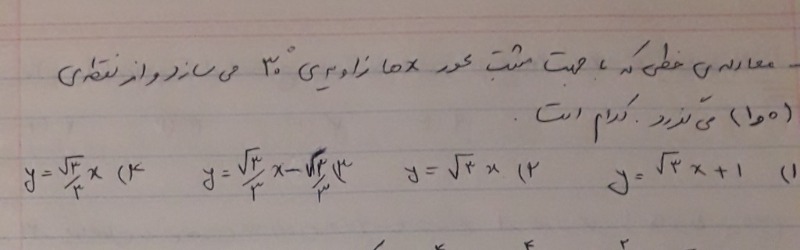 معادله‌ی خطی که با جهت مثبت محور xها زاویه‌ی ۳۰° می‌سازد و از نقطه‌ی
(۱و۰) می‌گذرد. کدام است.
۱) y = √۳ x + 1 ۲) y = √۳ x ۳) y = √۳/۳ x − √۳/۳ ۴) y = √۳/۳ x